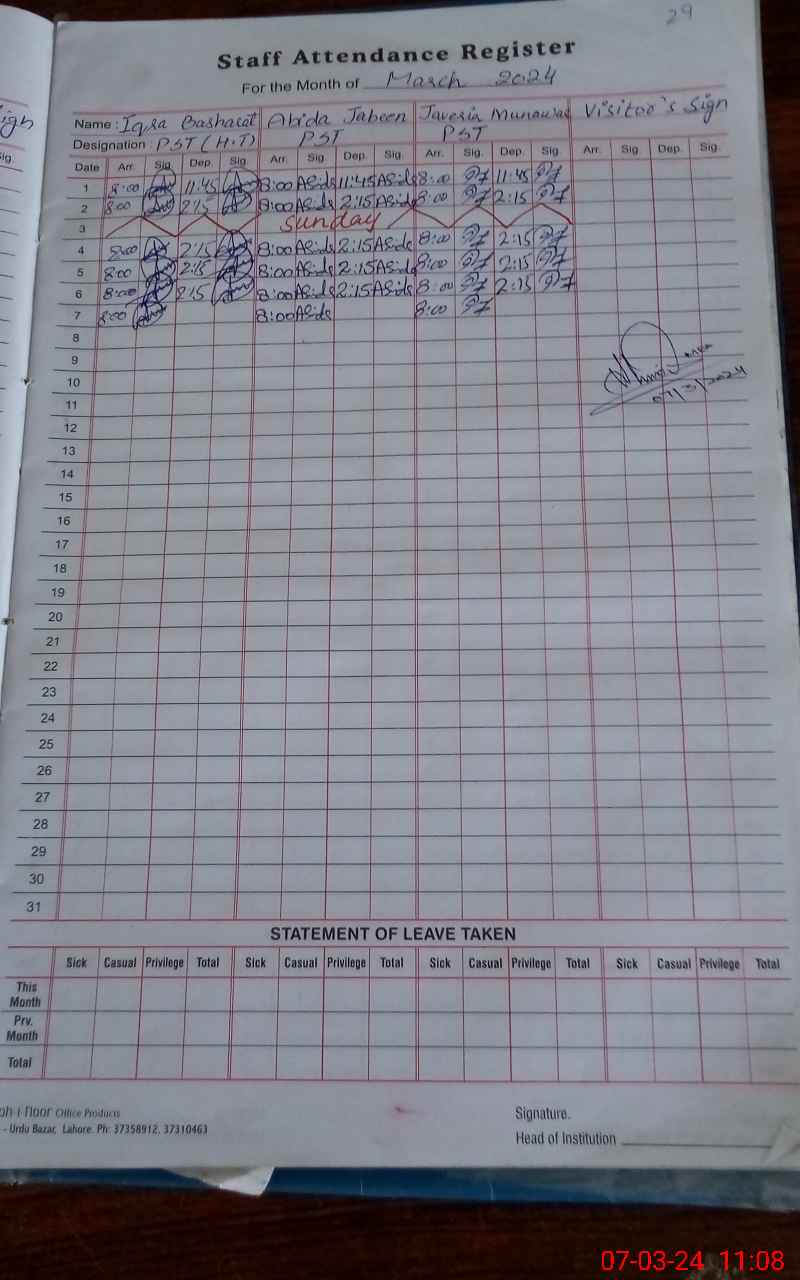 29
Staff Attendance Register
For the Month of March 2024
Name : Iqra Basharat Abida Jabeen Javeria Munawar Visitor's Sign
Designation : PST (H.T) PST PST
Date Arr. Sig. Dep. Sig. Arr. Sig. Dep. Sig. Arr. Sig. Dep. Sig. Arr. Sig. Dep. Sig.
1 8:00 11:45 8:00 Abida 11:45 Abida 8:00 11:45
2 8:00 2:15 8:00 Abida 2:15 Abida 8:00 2:15
3 Sunday
4 8:00 2:15 8:00 Abida 2:15 Abida 8:00 2:15
5 8:00 2:15 8:00 Abida 2:15 Abida 8:00 2:15
6 8:00 2:15 8:00 Abida 2:15 Abida 8:00 2:15
7 8:00 8:00 Abida 8:00
8
9
10
07/3/2024
11
12
13
14
15
16
17
18
19
20
21
22
23
24
25
26
27
28
29
30
31
STATEMENT OF LEAVE TAKEN
Sick Casual Privilege Total Sick Casual Privilege Total Sick Casual Privilege Total Sick Casual Privilege Total
This Month
Prv. Month
Total
Floor Office Products
- Urdu Bazar, Lahore. Ph: 37358912, 37310463
Signature.
Head of Institution
07-03-24 11:08